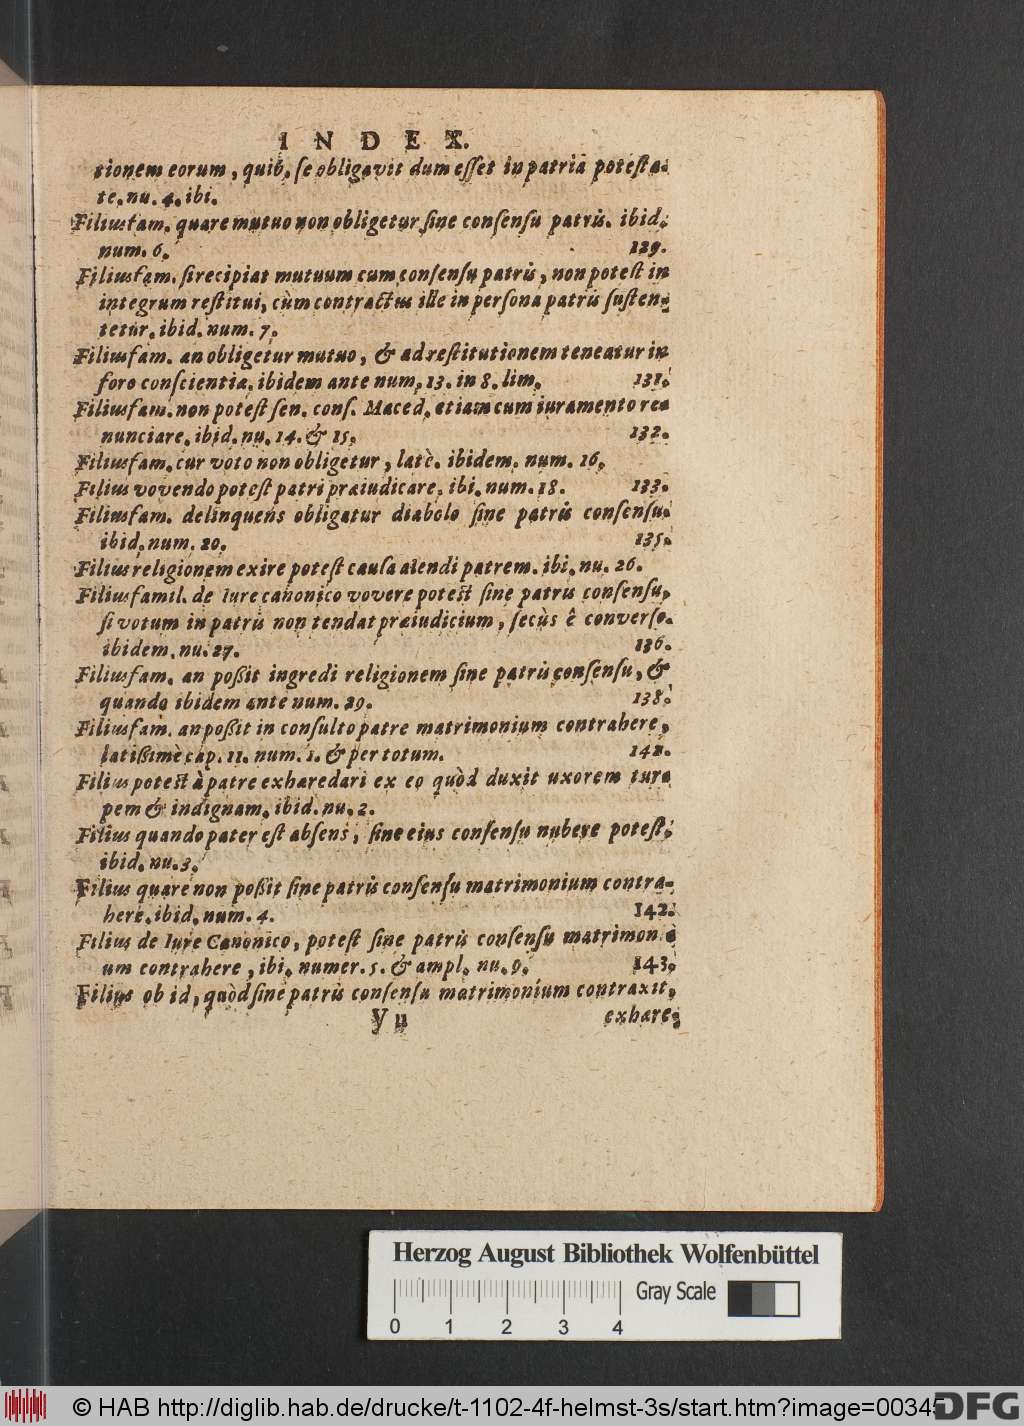 I N D E X.
tionem eorum, quib. se obligavit dum esset in patria potesta-
te. nu. 4. ibi.
Filiusfam. quare mutuo non obligetur sine consensu patris. ibid.
num. 6. 129.
Filiusfam. si recipiat mutuum cum consensu patris, non potest in
integrum restitui, cùm contractus ille in persona patris susten-
tetur. ibid. num. 7.
Filiusfam. an obligetur mutuo, & ad restitutionem teneatur in
foro conscientia. ibidem ante num. 13. in 8. lim. 131.
Filiusfam. non potest sen. cons. Maced. etiam cum iuramento re-
nunciare. ibid. nu. 14. & 15. 132.
Filiusfam. cur voto non obligetur, latè. ibidem. num. 16.
Filius vovendo potest patri præiudicare. ibi. num. 18. 133.
Filiusfam. delinquens obligatur diabolo sine patris consensu.
ibid. num. 20. 135.
Filius religionem exire potest causa alendi patrem. ibi. nu. 26.
Filiusfamil. de Iure canonico vovere potest sine patris consensu,
si votum in patris non tendat præiudicium, secùs ê converso.
ibidem. nu. 27. 136.
Filiusfam. an poßit ingredi religionem sine patris consensu, &
quando ibidem ante num. 29. 138.
Filiusfam. an poßit in consulto patre matrimonium contrahere,
latißimè cap. 11. num. 1. & per totum. 141.
Filius potest à patre exharedari ex eo quòd duxit uxorem tur-
pem & indignam. ibid. nu. 2.
Filius quando pater est absens, sine eius consensu nubere potest.
ibid. nu. 3.
Filius quare non poßit sine patris consensu matrimonium contra-
here. ibid. num. 4. 142.
Filius de Iure Canonico, potest sine patris consensu matrimoni-
um contrahere, ibi. numer. 5. & ampl. nu. 9. 143.
Filius ob id, quòd sine patris consensu matrimonium contraxit,
Y ij exhare-
Herzog August Bibliothek Wolfenbüttel
Gray Scale
0 1 2 3 4
© HAB http://diglib.hab.de/drucke/t-1102-4f-helmst-3s/start.htm?image=00345
DFG